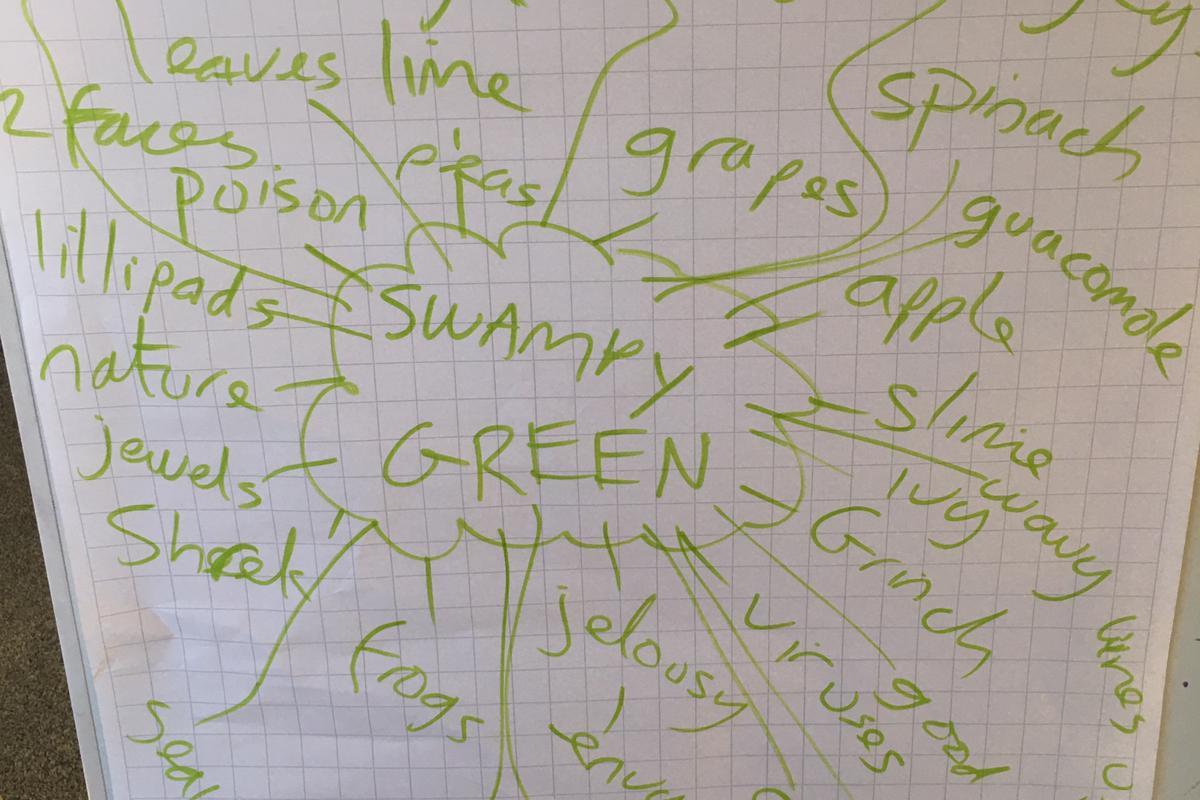 leaves lime
2 faces
poison
peas
grapes
spinach
guacomole
apple
lillipads
nature
jewels
Shrek
SWAMPY
GREEN
slime
ivy
wavy
Grinch
good
viruses
jelousy
frogs
sea